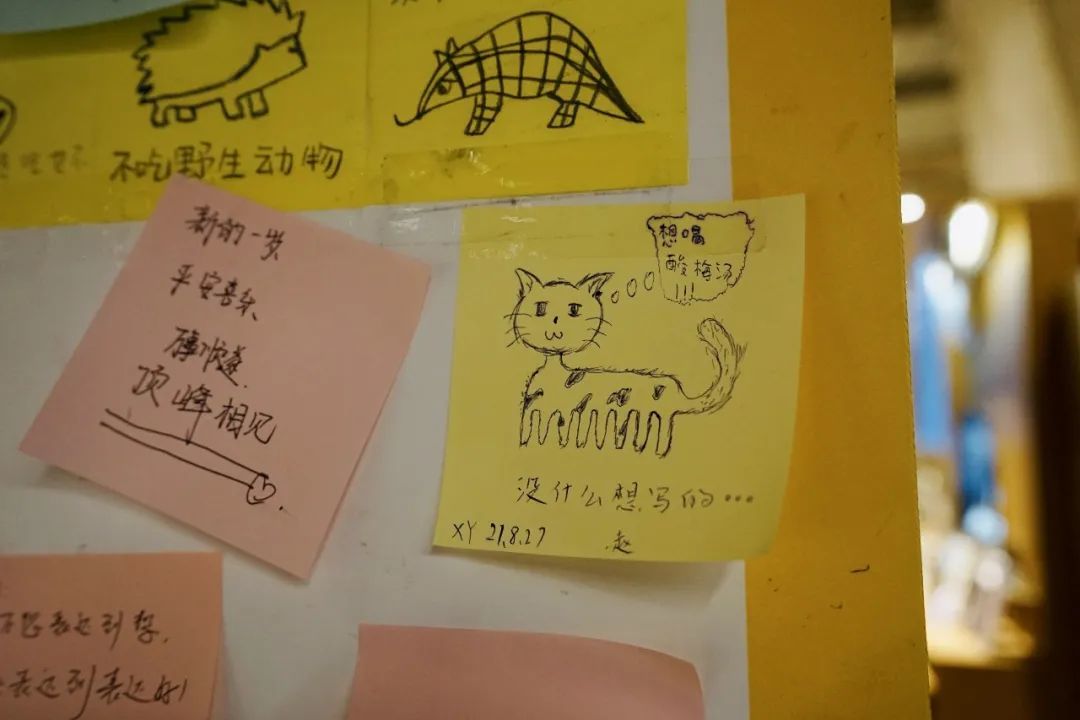 不吃野生动物
新的一岁
平安喜乐
顶峰相见
想喝
酸梅汤
!!!
没什么想写的…
XY 21.8.27
赵
表达到表达好!